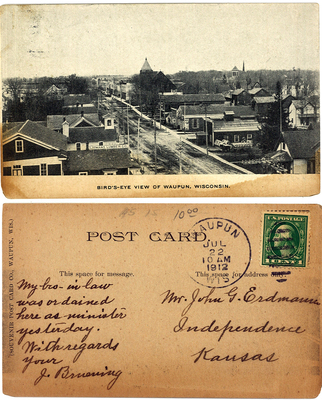 BIRD'S-EYE VIEW OF WAUPUN, WISCONSIN.
10.00
POST CARD
This space for message.
This space for address
SOUVENIR POST CARD CO., WAUPUN, WIS.
WAUPUN
JUL
22
10 AM
1912
WIS
My bro-in-law
was ordained
here as minister
yesterday.
With regards
your
J. Bruening
Mr. John G. Erdmann
Independence
Kansas